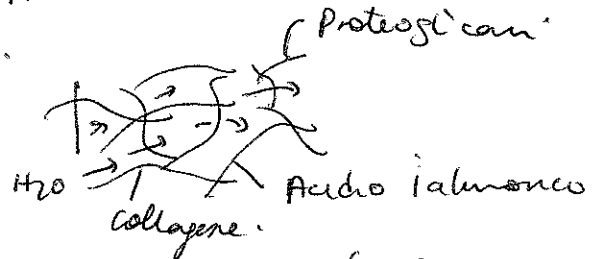 Proteoglicani
H2O
Acido ialuronico
collagene.